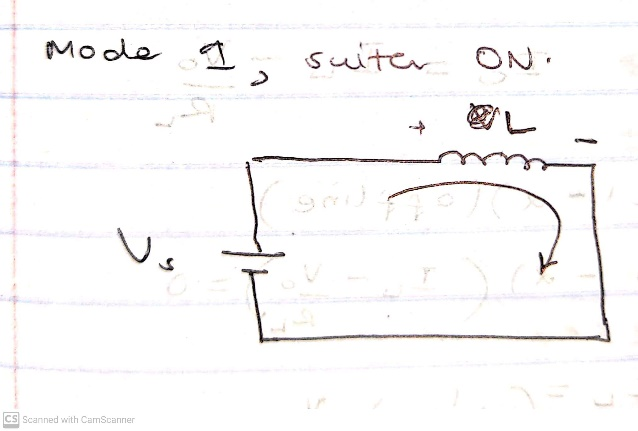 Mode 1, suiter ON.
+ L -
Vs
CS Scanned with CamScanner